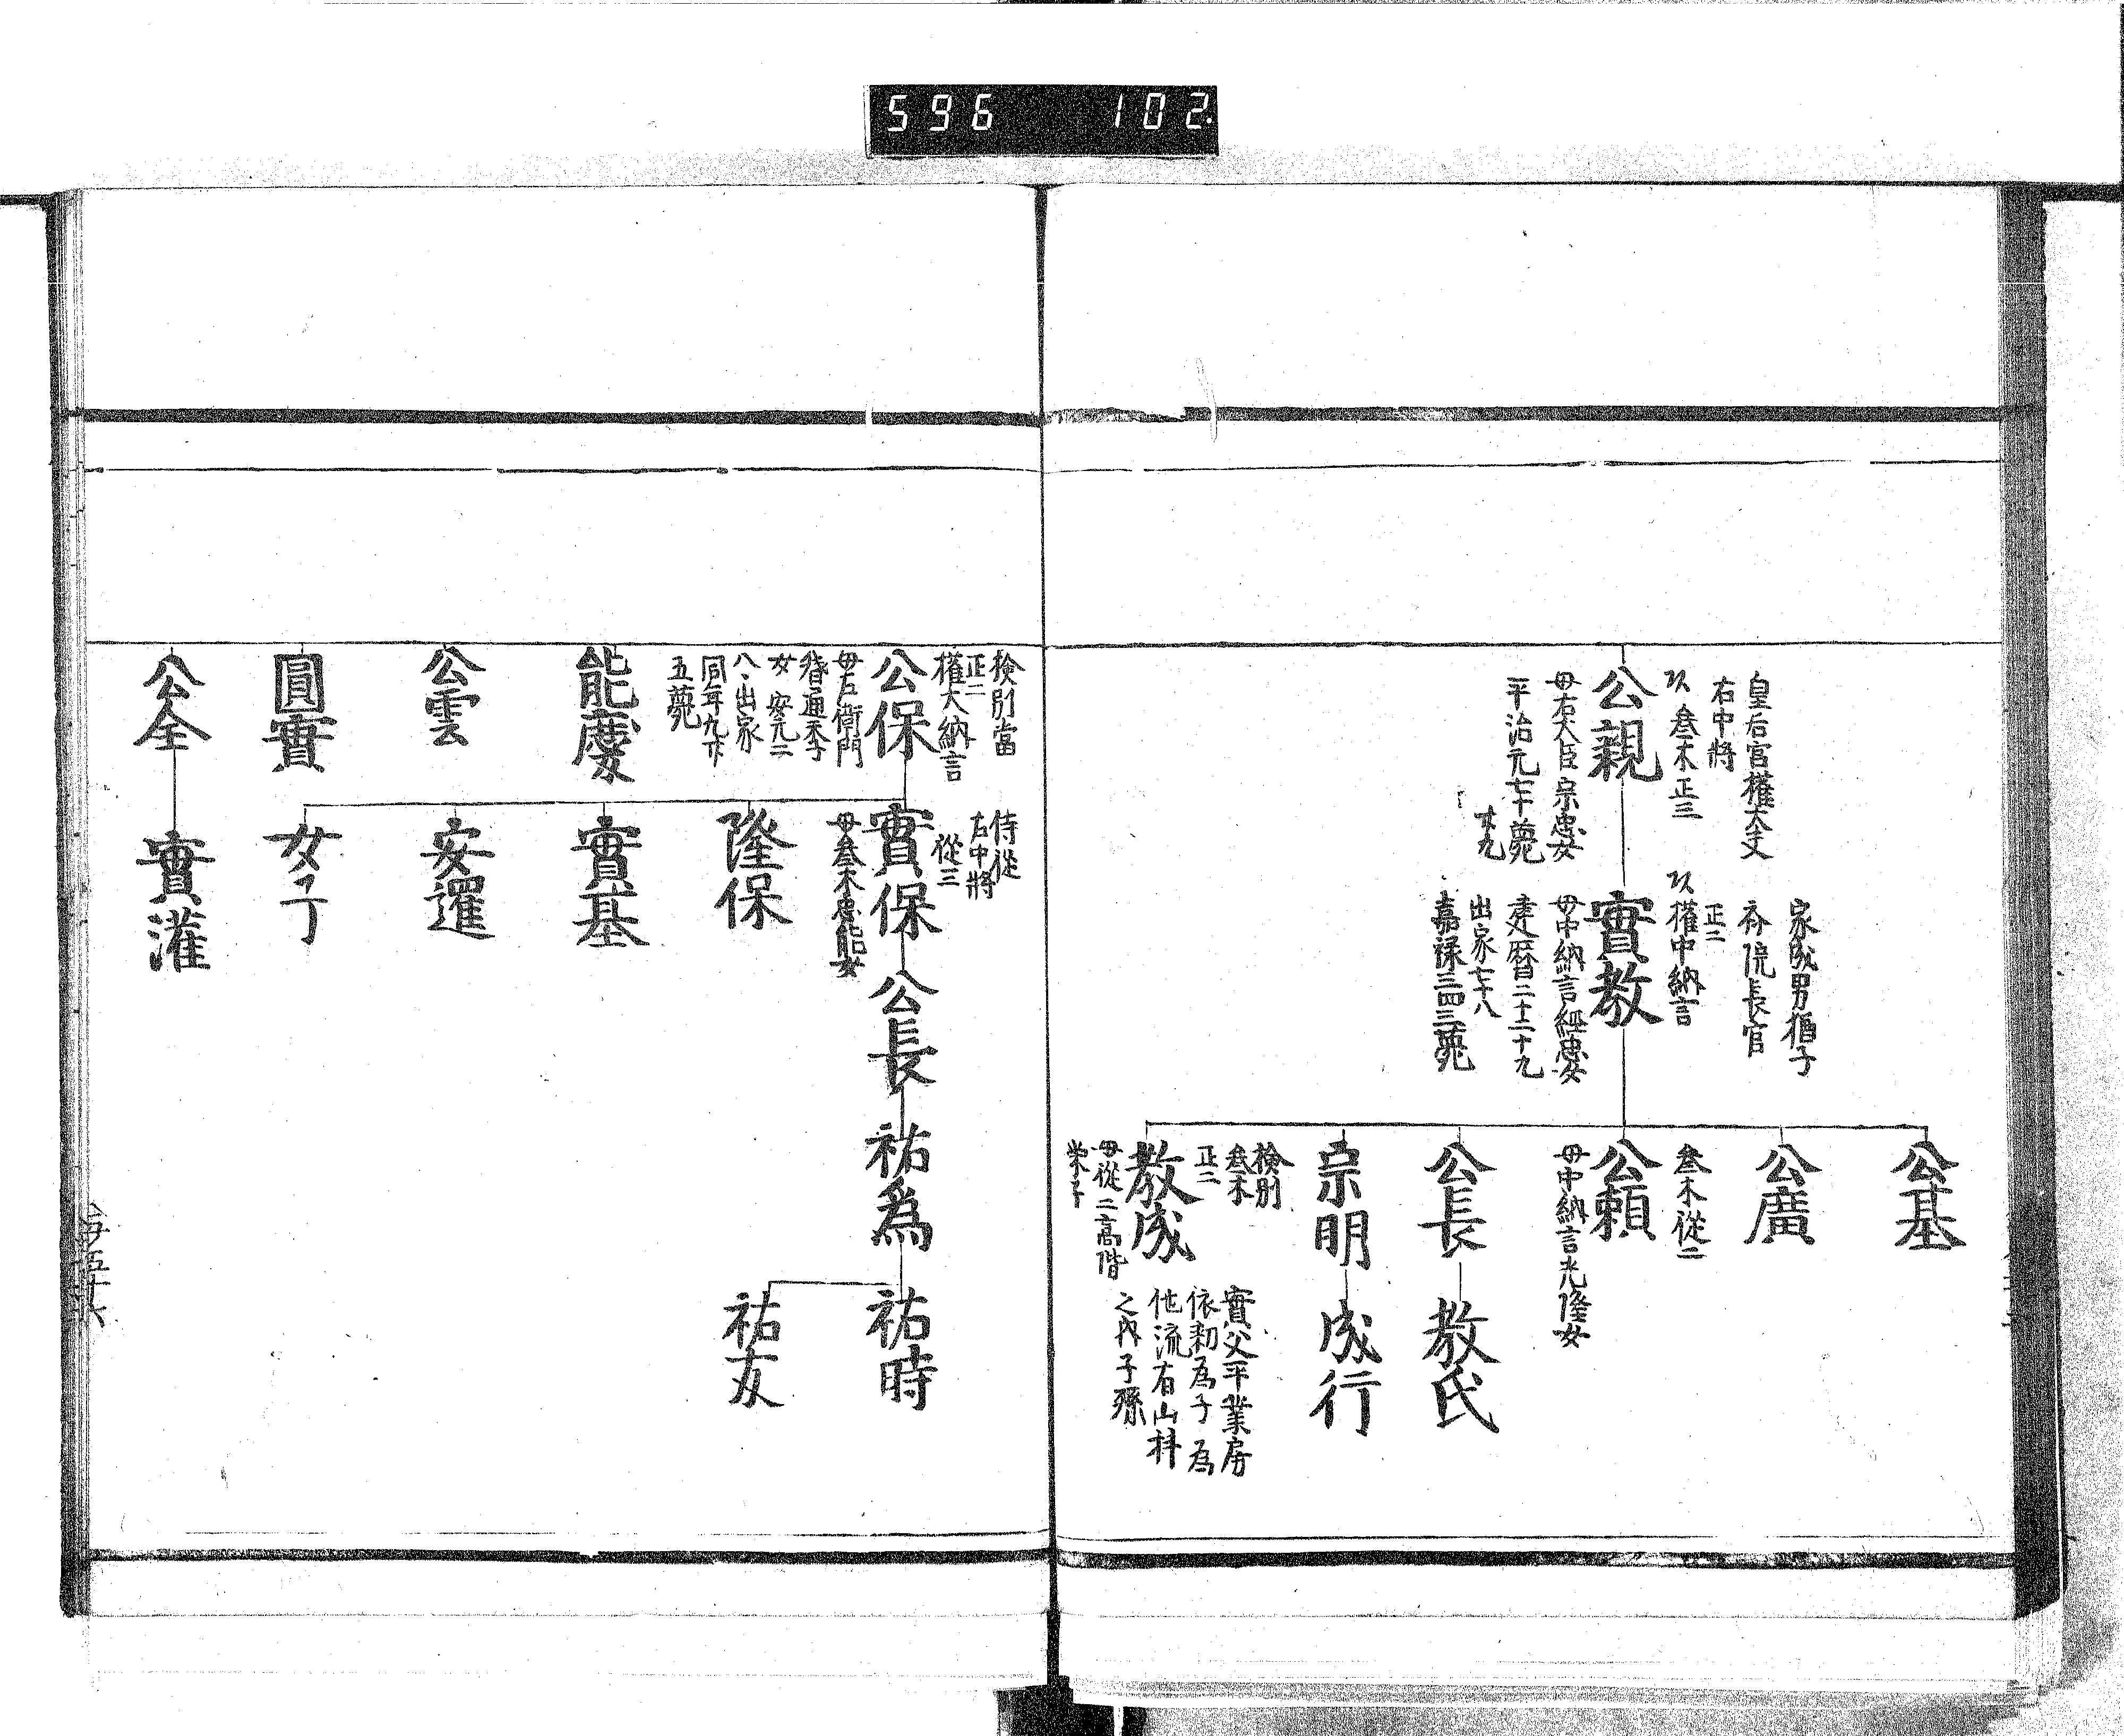 596 102.
皇后宮權大夫
右中將
以叄木正三
公親
母右大臣宗忠女
平治元七十薨
廿九
家成男猶子
補院長官
正二
以權中納言
實教
母中納言經忠女
建暦二十二十九
出家七十八
嘉禄三四三薨
公基
公廣
叄木從二
公頼
母中納言光隆女
公長
教氏
宗明
成行
檢別
叄木
正二
教成
母從二高階
栄子
實父平業房
依勅為子為
他流有山科
之内子孫
檢別當
正二
權大納言
公保
母左衛門
督通季
女安元二
八、出家
同年九廿
五薨
侍從
右中將
從三
實保
母叄木忠能女
公長
祐爲
祐時
祐友
隆保
能慶
實基
公雲
安暹
圓實
女子
公全
實灌